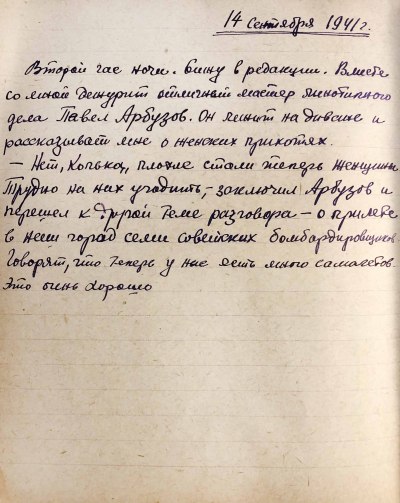 14 Сентября 1941 г.
Второй час ночи. Сижу в редакции. Вместе
со мной дежурит отличный мастер линотипного
дела Павел Арбузов. Он лежит на диване и
рассказывает мне о женских прихотях.
— Нет, Колька, плохие стали теперь женщины
Трудно на них угодить, – заключил Арбузов и
перешел к другой теме разговора – о прилете
в наш город семи советских бомбардировщиков.
Говорят, что теперь у нас есть много самолетов.
Это очень хорошо